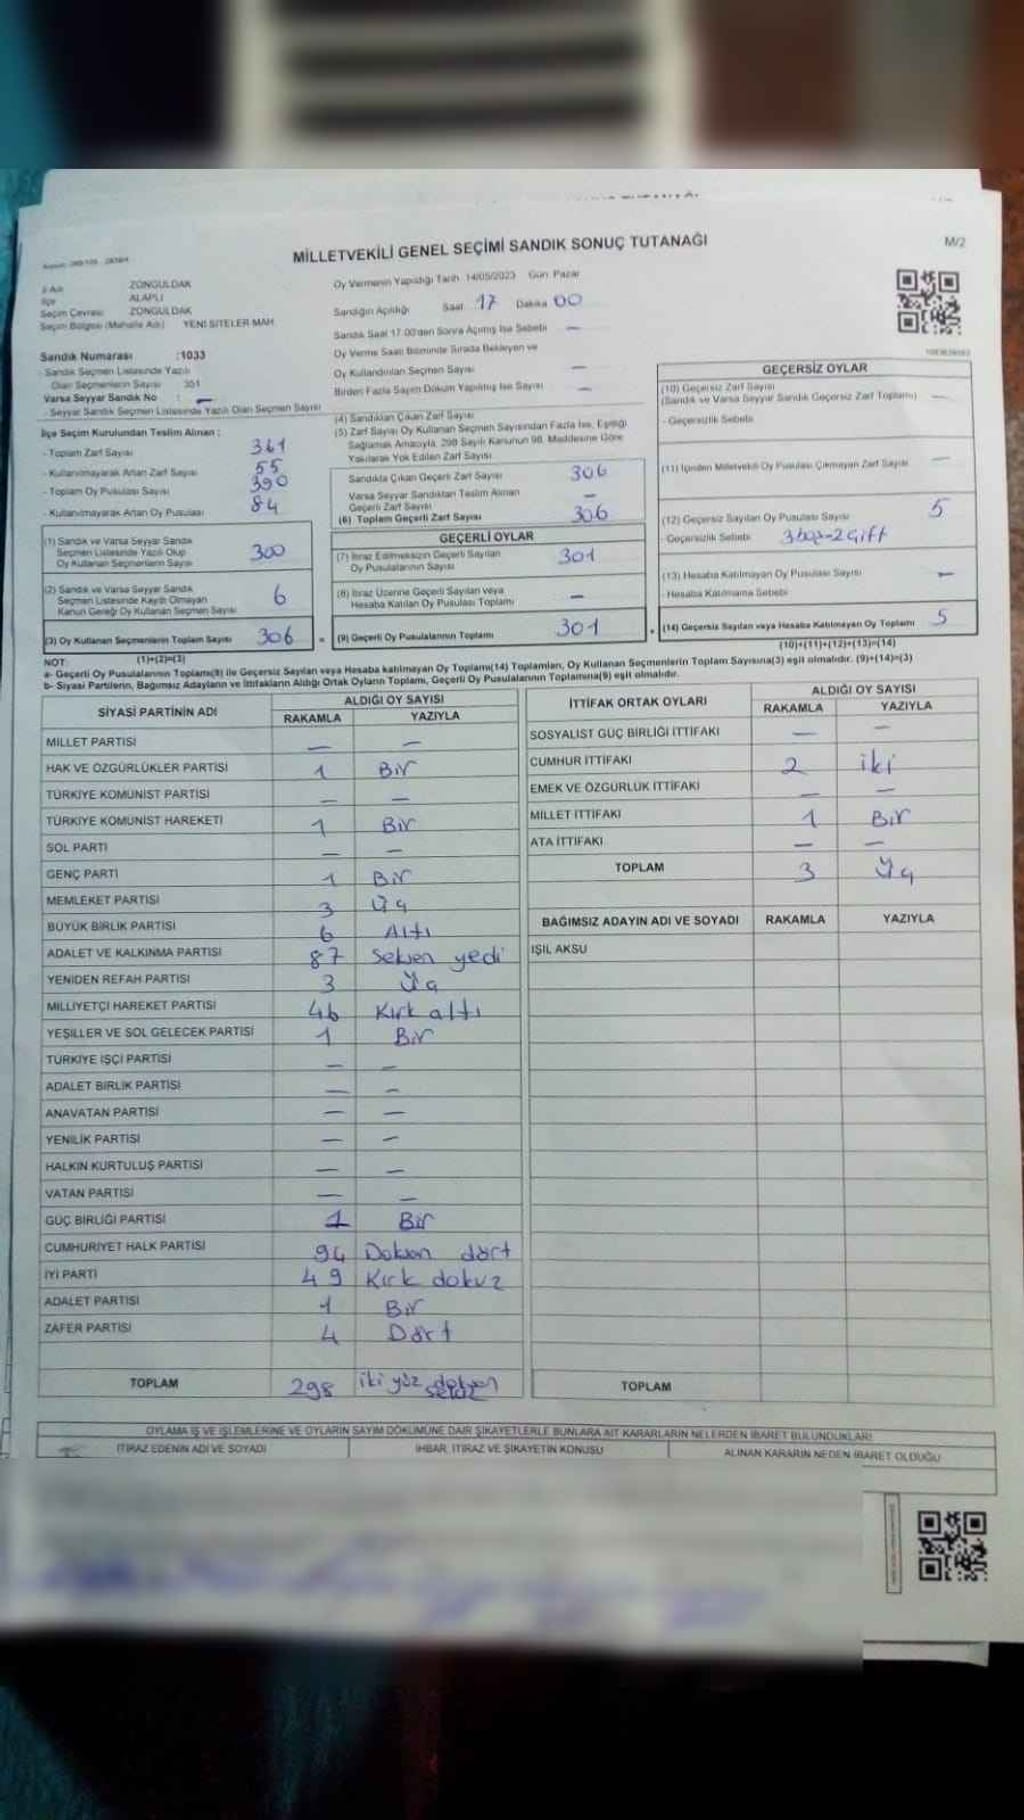 MİLLETVEKİLİ GENEL SEÇİMİ SANDIK SONUÇ TUTANAĞI
M/2
İl Adı ZONGULDAK
İlçe ALAPLI
Seçim Çevresi ZONGULDAK
Seçim Bölgesi (Mahalle Adı) YENİ SİTELER MAH.
Sandık Numarası :1033
Sandık Seçmen Listesinde Yazılı
Olan Seçmenlerin Sayısı 301
Varsa Seyyar Sandık No : -
- Seyyar Sandık Seçmen Listesinde Yazılı Olan Seçmen Sayısı
Oy Vermenin Yapıldığı Tarih 14/05/2023 Gün Pazar
Sandığın Açıldığı Saat 17 Dakika 00
Sandık Saat 17.00'den Sonra Açılmış İse Sebebi —
Oy Verme Saati Bitiminde Sırada Bekleyen ve
Oy Kullandırılan Seçmen Sayısı —
Birden Fazla Sayım Döküm Yapılmış İse Sayısı —
İlçe Seçim Kurulundan Teslim Alınan :
- Toplam Zarf Sayısı 361
- Kullanılmayarak Artan Zarf Sayısı 55
- Toplam Oy Pusulası Sayısı 390
- Kullanılmayarak Artan Oy Pusulası 84
(1) Sandık ve Varsa Seyyar Sandık
Seçmen Listesinde Yazılı Olup
Oy Kullanan Seçmenlerin Sayısı 300
(2) Sandık ve Varsa Seyyar Sandık
Seçmen Listesinde Kayıtlı Olmayan
Kanun Gereği Oy Kullanan Seçmen Sayısı 6
(3) Oy Kullanan Seçmenlerin Toplam Sayısı 306
(1)+(2)=(3)
(4) Sandıktan Çıkan Zarf Sayısı
(5) Zarf Sayısı Oy Kullanan Seçmen Sayısından Fazla İse, Eşitliği
Sağlamak Amacıyla, 298 Sayılı Kanunun 98. Maddesine Göre
Yakılarak Yok Edilen Zarf Sayısı
Sandıkta Çıkan Geçerli Zarf Sayısı 306
Varsa Seyyar Sandıktan Teslim Alınan
Geçerli Zarf Sayısı —
(6) Toplam Geçerli Zarf Sayısı 306
GEÇERLİ OYLAR
(7) İtiraz Edilmeksizin Geçerli Sayılan
Oy Pusulalarının Sayısı 301
(8) İtiraz Üzerine Geçerli Sayılan veya
Hesaba Katılan Oy Pusulası Toplamı —
= (9) Geçerli Oy Pusulalarının Toplamı 301
GEÇERSİZ OYLAR
(10) Geçersiz Zarf Sayısı
(Sandık ve Varsa Seyyar Sandık Geçersiz Zarf Toplamı) —
- Geçersizlik Sebebi
(11) İçinden Milletvekili Oy Pusulası Çıkmayan Zarf Sayısı —
(12) Geçersiz Sayılan Oy Pusulası Sayısı 5
Geçersizlik Sebebi 3 boş-2 çift
(13) Hesaba Katılmayan Oy Pusulası Sayısı —
- Hesaba Katılmama Sebebi
+ (14) Geçersiz Sayılan veya Hesaba Katılmayan Oy Toplamı 5
(10)+(11)+(12)+(13)=(14)
NOT:
a- Geçerli Oy Pusulalarının Toplamı(9) ile Geçersiz Sayılan veya Hesaba katılmayan Oy Toplamı(14) Toplamları, Oy Kullanan Seçmenlerin Toplam Sayısına(3) eşit olmalıdır. (9)+(14)=(3)
b- Siyasi Partilerin, Bağımsız Adayların ve İttifakların Aldığı Ortak Oyların Toplamı, Geçerli Oy Pusulalarının Toplamına(9) eşit olmalıdır.
SİYASİ PARTİNİN ADI ALDIĞI OY SAYISI
RAKAMLA YAZIYLA
MİLLET PARTİSİ — —
HAK VE ÖZGÜRLÜKLER PARTİSİ 1 Bir
TÜRKİYE KOMÜNİST PARTİSİ — —
TÜRKİYE KOMÜNİST HAREKETİ 1 Bir
SOL PARTİ — —
GENÇ PARTİ 1 Bir
MEMLEKET PARTİSİ 3 Üç
BÜYÜK BİRLİK PARTİSİ 6 Altı
ADALET VE KALKINMA PARTİSİ 87 Seksen yedi
YENİDEN REFAH PARTİSİ 3 Üç
MİLLİYETÇİ HAREKET PARTİSİ 46 Kırk altı
YEŞİLLER VE SOL GELECEK PARTİSİ 1 Bir
TÜRKİYE İŞÇİ PARTİSİ — —
ADALET BİRLİK PARTİSİ — —
ANAVATAN PARTİSİ — —
YENİLİK PARTİSİ — —
HALKIN KURTULUŞ PARTİSİ — —
VATAN PARTİSİ — —
GÜÇ BİRLİĞİ PARTİSİ 1 Bir
CUMHURİYET HALK PARTİSİ 94 Doksan dört
İYİ PARTİ 49 Kırk dokuz
ADALET PARTİSİ 1 Bir
ZAFER PARTİSİ 4 Dört
TOPLAM 298 iki yüz doksan sekiz
İTTİFAK ORTAK OYLARI ALDIĞI OY SAYISI
RAKAMLA YAZIYLA
SOSYALİST GÜÇ BİRLİĞİ İTTİFAKI — —
CUMHUR İTTİFAKI 2 iki
EMEK VE ÖZGÜRLÜK İTTİFAKI — —
MİLLET İTTİFAKI 1 Bir
ATA İTTİFAKI — —
TOPLAM 3 Üç
BAĞIMSIZ ADAYIN ADI VE SOYADI RAKAMLA YAZIYLA
IŞIL AKSU
TOPLAM
OYLAMA İŞ VE İŞLEMLERİNE VE OYLARIN SAYIM DÖKÜMÜNE DAİR ŞİKAYETLERLE BUNLARA AİT KARARLARIN NELERDEN İBARET BULUNDUKLARI
İTİRAZ EDENİN ADI VE SOYADI İHBAR, İTİRAZ VE ŞİKAYETİN KONUSU ALINAN KARARIN NEDEN İBARET OLDUĞU